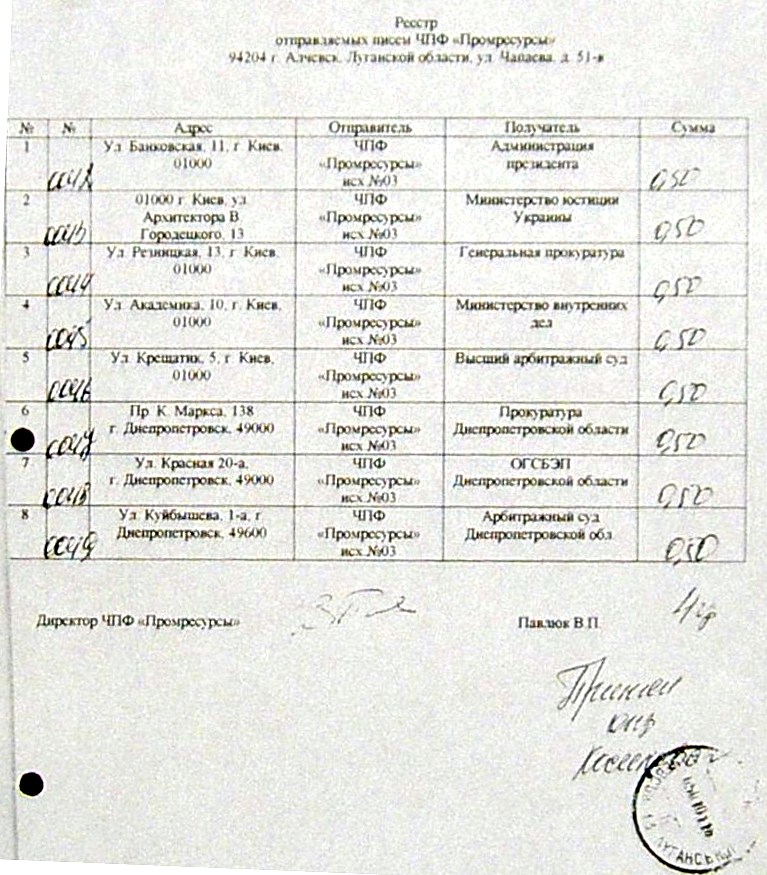 Реестр
отправляемых писем ЧПФ «Промресурсы»
94204 г. Алчевск, Луганской области, ул. Чапаева, д. 51-в
№ № Адрес Отправитель Получатель Сумма
1 Ул. Банковская, 11, г. Киев, ЧПФ Администрация
01000 «Промресурсы» президента
0042 исх №03 0,50
2 01000 г. Киев, ул. ЧПФ Министерство юстиции
Архитектора В. «Промресурсы» Украины
0043 Городецкого, 13 исх №03 0,50
3 Ул. Резницкая, 13, г. Киев, ЧПФ Генеральная прокуратура
01000 «Промресурсы»
0044 исх №03 0,50
4 Ул. Академика, 10, г. Киев, ЧПФ Министерство внутренних
01000 «Промресурсы» дел
0045 исх №03 0,50
5 Ул. Крещатик, 5, г. Киев, ЧПФ Высший арбитражный суд
01000 «Промресурсы»
0046 исх №03 0,50
6 Пр. К. Маркса, 138 ЧПФ Прокуратура
г. Днепропетровск, 49000 «Промресурсы» Днепропетровской области
0047 исх №03 0,50
7 Ул. Красная 20-а, ЧПФ ОГСБЭП
г. Днепропетровск, 49000 «Промресурсы» Днепропетровской области
0048 исх №03 0,50
8 Ул. Куйбышева, 1-а, г. ЧПФ Арбитражный суд
Днепропетровск, 49600 «Промресурсы» Днепропетровской обл.
0049 исх №03 0,50
Директор ЧПФ «Промресурсы» Павлюк В.П.